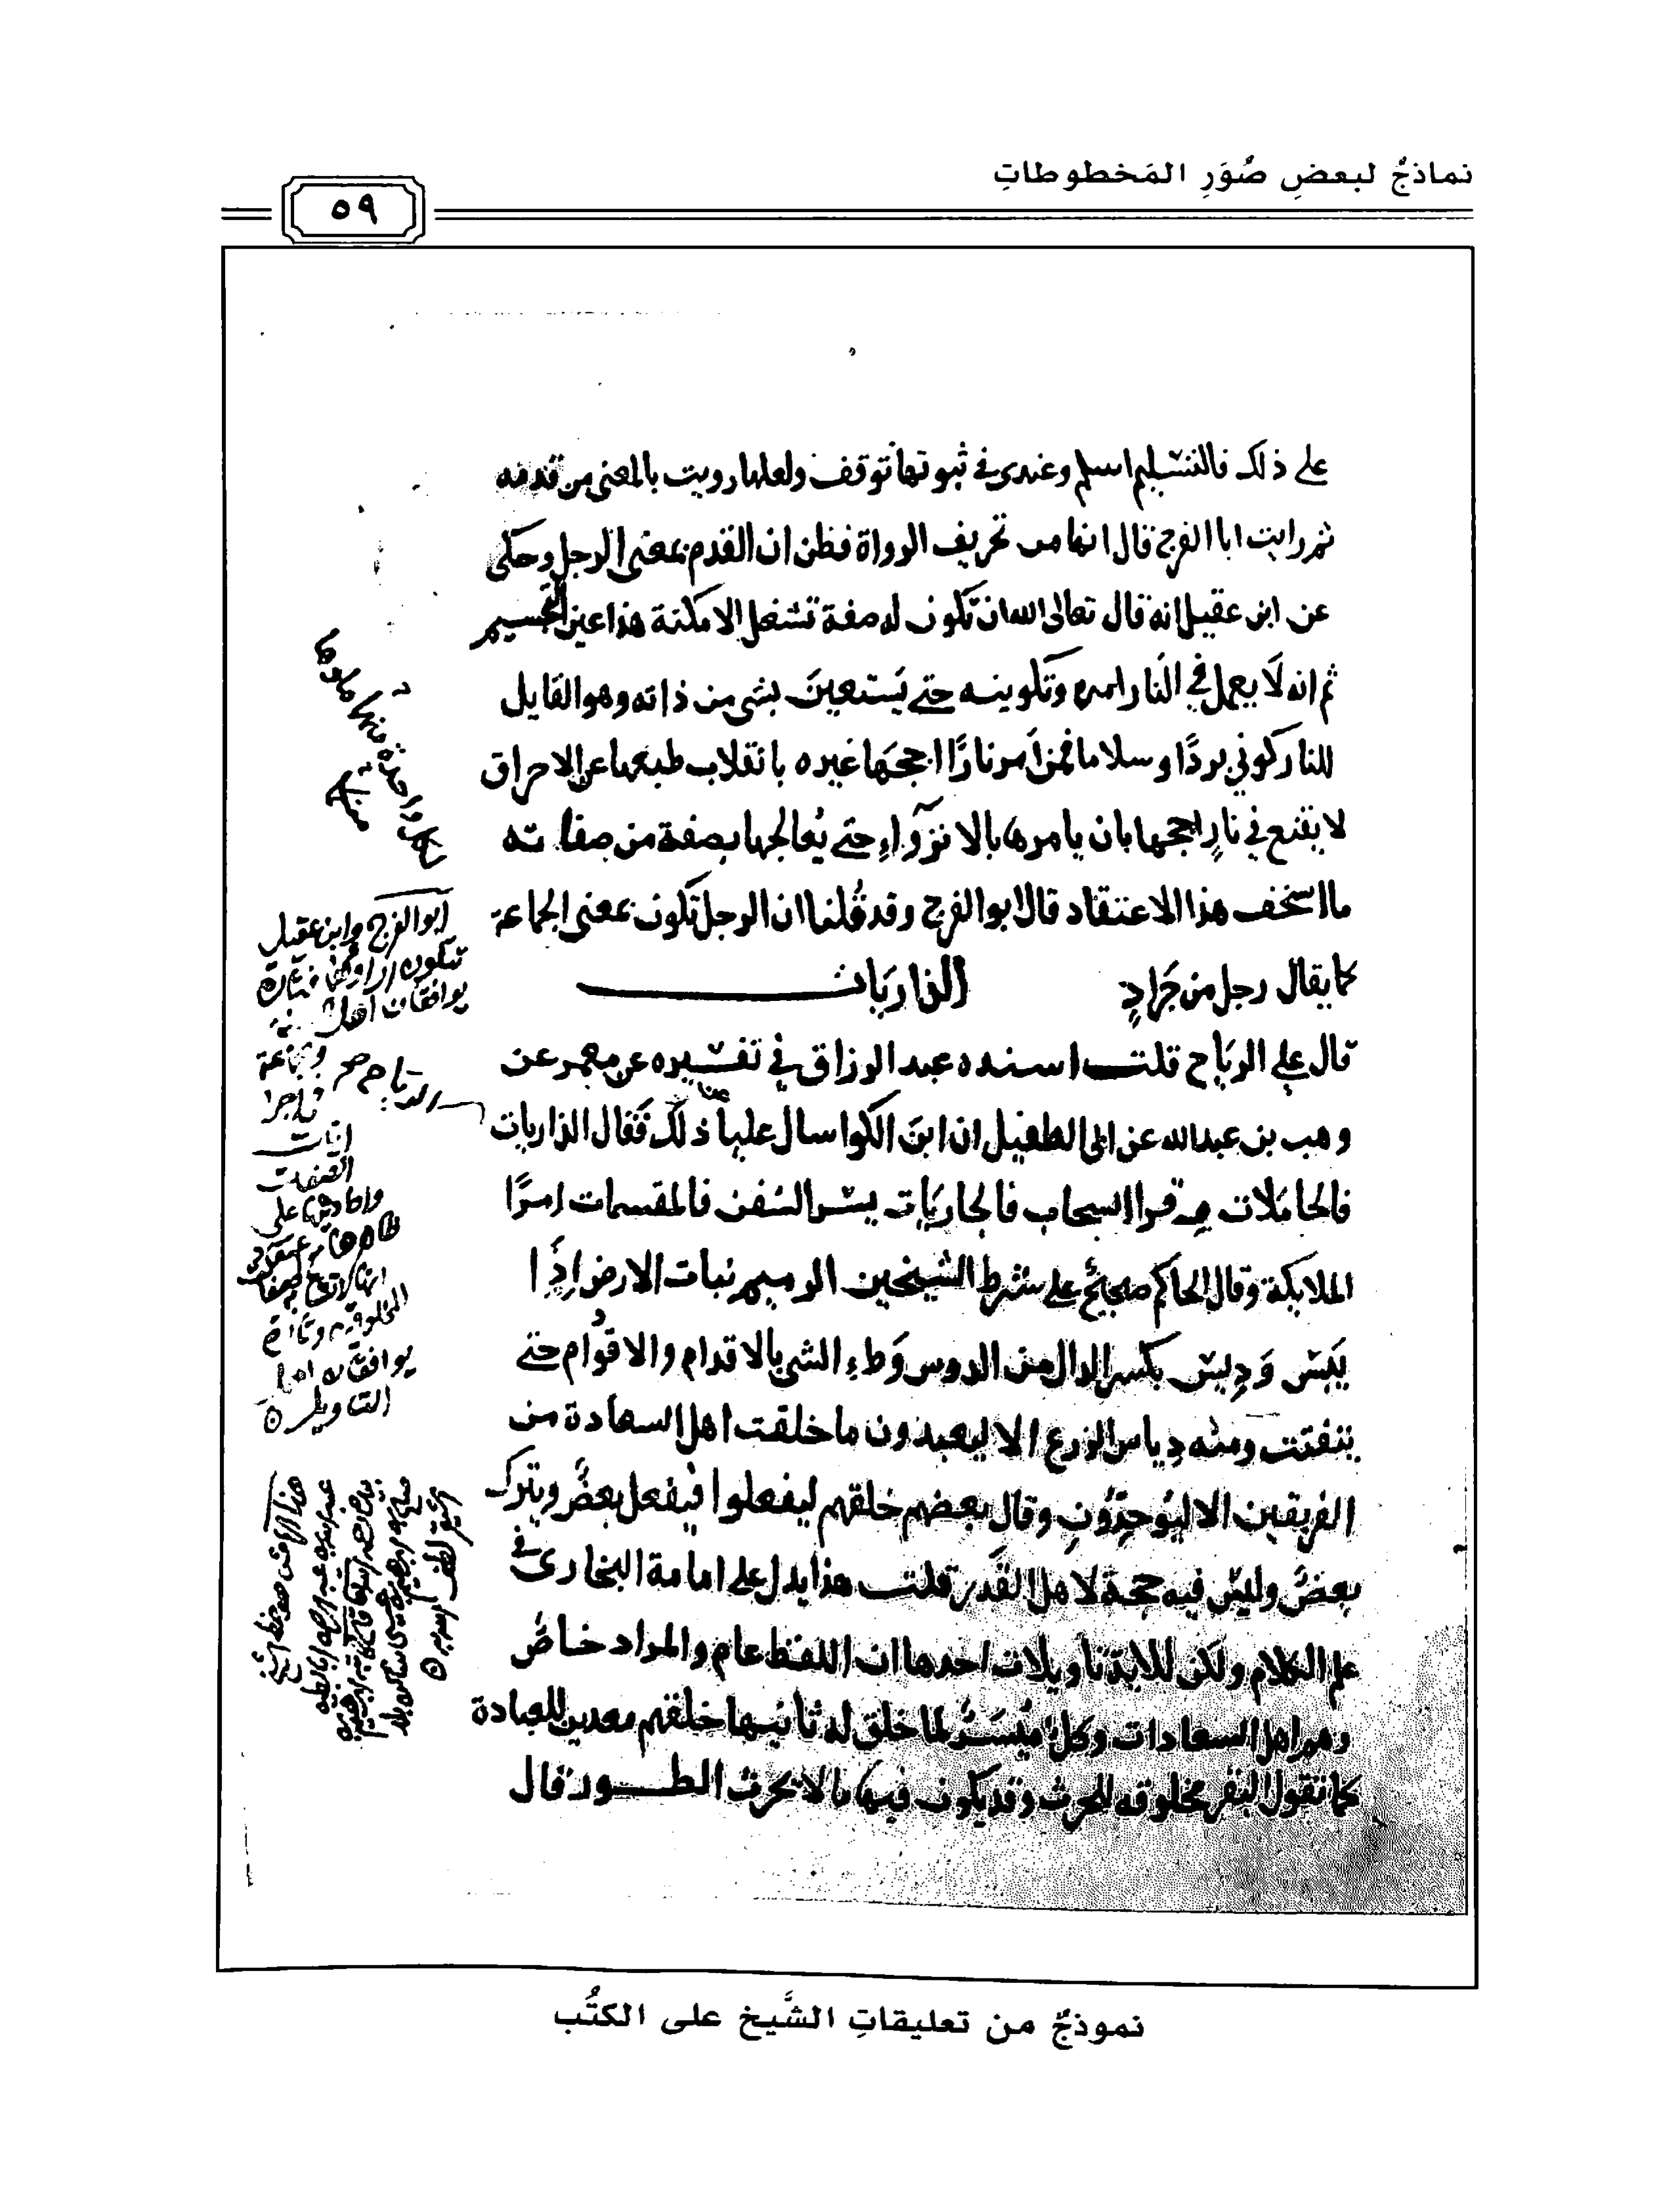 نماذجُ لبعضِ صُوَرِ المَخطوطاتِ
٥٩
على ذلك فالتسليم اسلم وعندي في ثبوتها توقف ولعلها رويت بالمعنى من قدمه
ثم رايت ابا الفرج قال انها من تحريف الرواة فظن ان القدم بمعنى الرجل وحكى
عن ابن عقيل انه قال تعالى الله ان تكون له صفة تشغل الامكنة هذا عين التجسيم
ثم انه لا يعمل في النار امره وتكوينه حتى يستعين بشي من ذاته وهو القايل
للنار كوني بردًا وسلاما فمن امر نارًا اججها غيره بانقلاب طبعها عن الاحراق
لا يقنع في نارٍ اججها بان يامرها بالانزواءِ حتى يُعالجها بصفة من صفاته
ما اسخف هذا الاعتقاد قال ابو الفرج وقد قلنا ان الرجل تكون بمعنى الجماعة
كما يقال رجل من جَرادٍ الذاريات
قال علي الرياح قلت اسنده عبد الرزاق في تفسيره عن معمر عن
وهب بن عبدالله عن ابي الطفيل ان ابن الكوا سال عليا عن ذلك فقال الذاريات
فالحاملات وقرا السحاب فالجاريات يسرا السفن فالمقسمات امرًا
الملايكة وقال الحاكم صحيح على شرط الشيخين الرميم نبات الارض اذا
يبس وَدِيس بكسر الدال من الدوس وَطءِ الشي بالاقدام والاقوام حتى
يتفتت ومنه دِياس الزرع الا ليعبدون ما خلقت اهل السعادة من
الفريقين الا ليُوحِدُونِ وقال بعضهم خلقهم ليفعلوا ففعل بعضٌ وترك
بعضٌ وليس فيه حجة لاهل القَدر قلت هذا يدل على امامة البخاري في
علم الكلام ولكن للاية تاويلات احدها ان اللفظ عام والمراد خاصٌ
وهم اهل السعادات وكلٌ مُيسَّرٌ لما خلق له ثانيها خلقهم معدين للعبادة
كما تقول البقر مخلوقه للحرث وقد يكون فيها ما لا يحرث الطور قال
ابو الفرج وابن عقيل
يوافقان اهل
وجماعة
الصفات
على
يوافقان اهل
التاويل
نموذجٌ من تعليقاتِ الشَّيخ على الكتُب